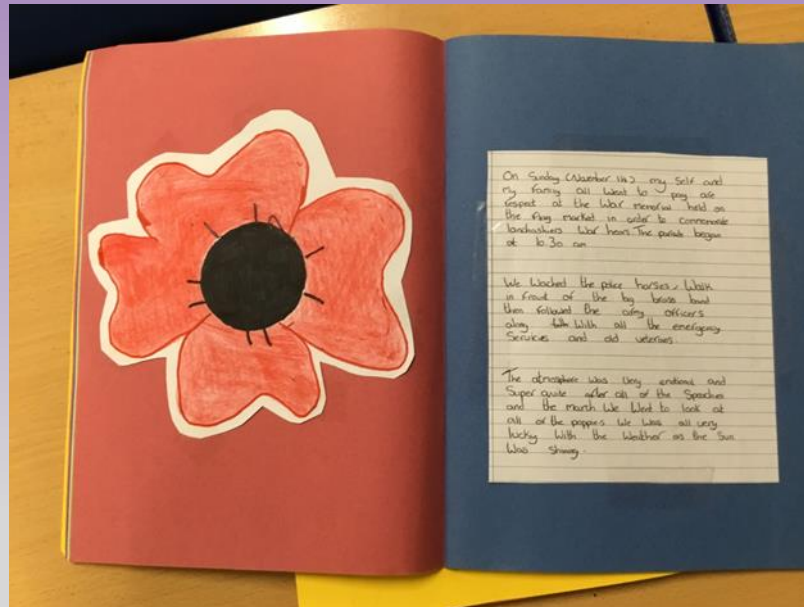 On Sunday (November 11th) my self and
my family all went to pay are
respect at the War memorial held on
the flag market in order to commemorate
lancashires War heors. The parade began
at 10.30 am
We Wached the police horses, Walk
in front of the big brass band
then followed the army officers
along With all the emergency
Services and old veterines
The atmosphere was very emtional and
Super quite after all of the Speaches
and the march We Went to look at
all of the poppies We was all very
lucky With the Weather as the Sun
Was shining.